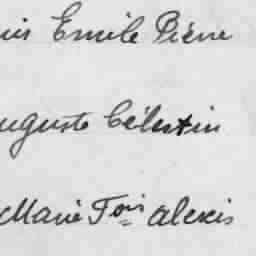 uis Emile Pierre
uguste Célestin
Marie Fois alexis